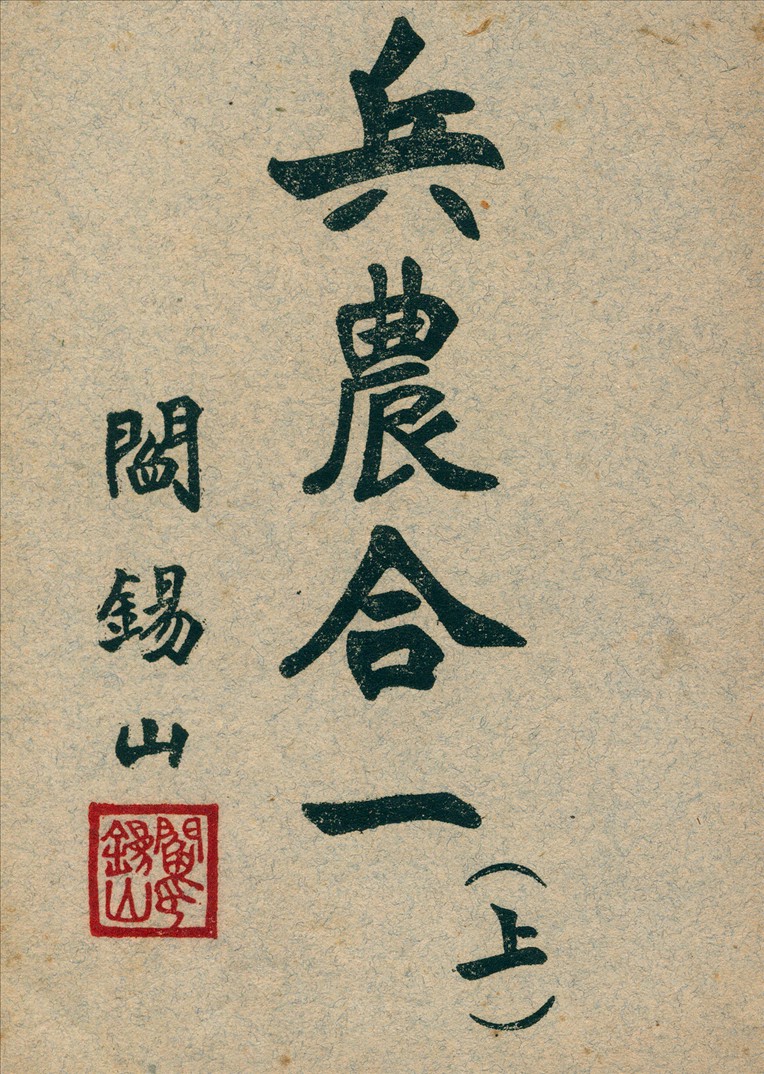 兵農合一
(上)
閻錫山
閻錫山印